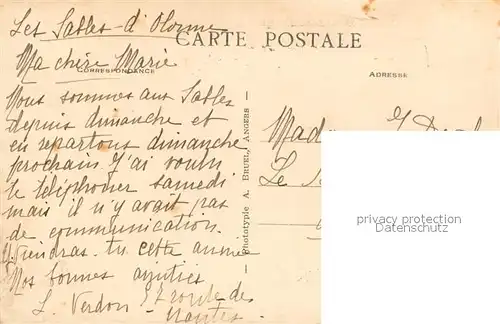 Les Sables-d'Olonne
CARTE POSTALE
Ma chère Marie
CORRESPONDANCE
ADRESSE
Nous sommes aux Sables
depuis dimanche et
en repartons dimanche
prochain J'ai voulu
te téléphoner samedi
mais il n'y avait pas
de communication.
Viendras-tu cette année
Nos bonnes amitiés
L. Verdon route de
Nantes
Phototype A. BRUEL, ANGERS
Le
privacy protection
Datenschutz